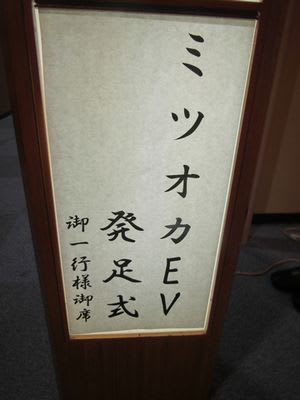 ミツオカEV
発足式
御一行様御席